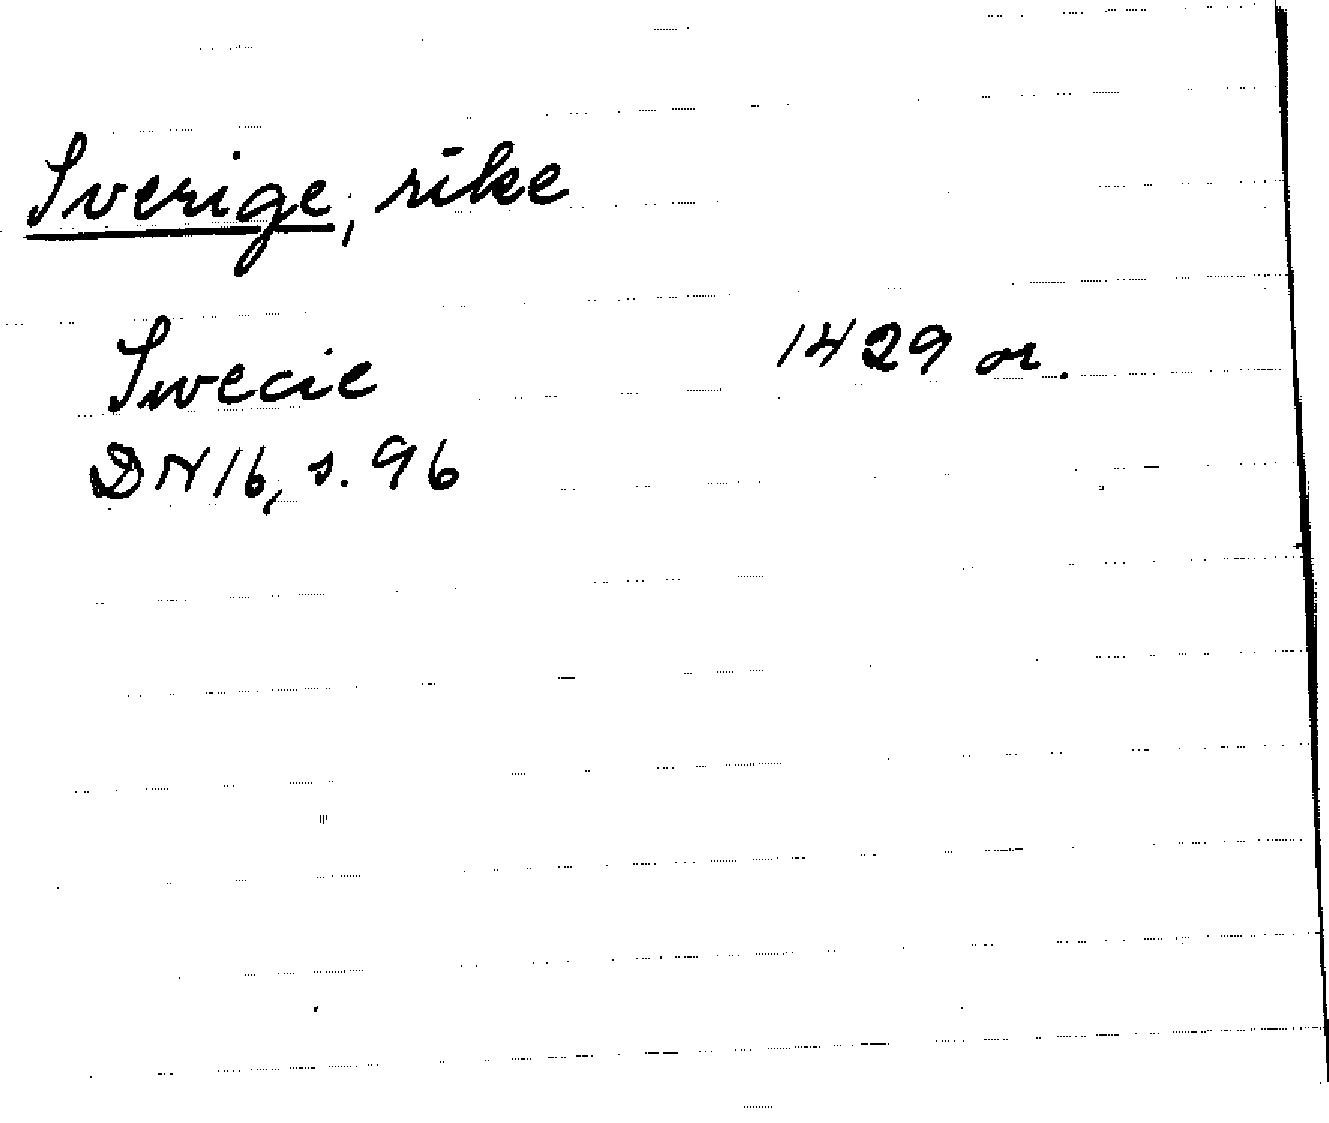 Sverige, rike
Swecie 1429 or.
DN 16, s. 96